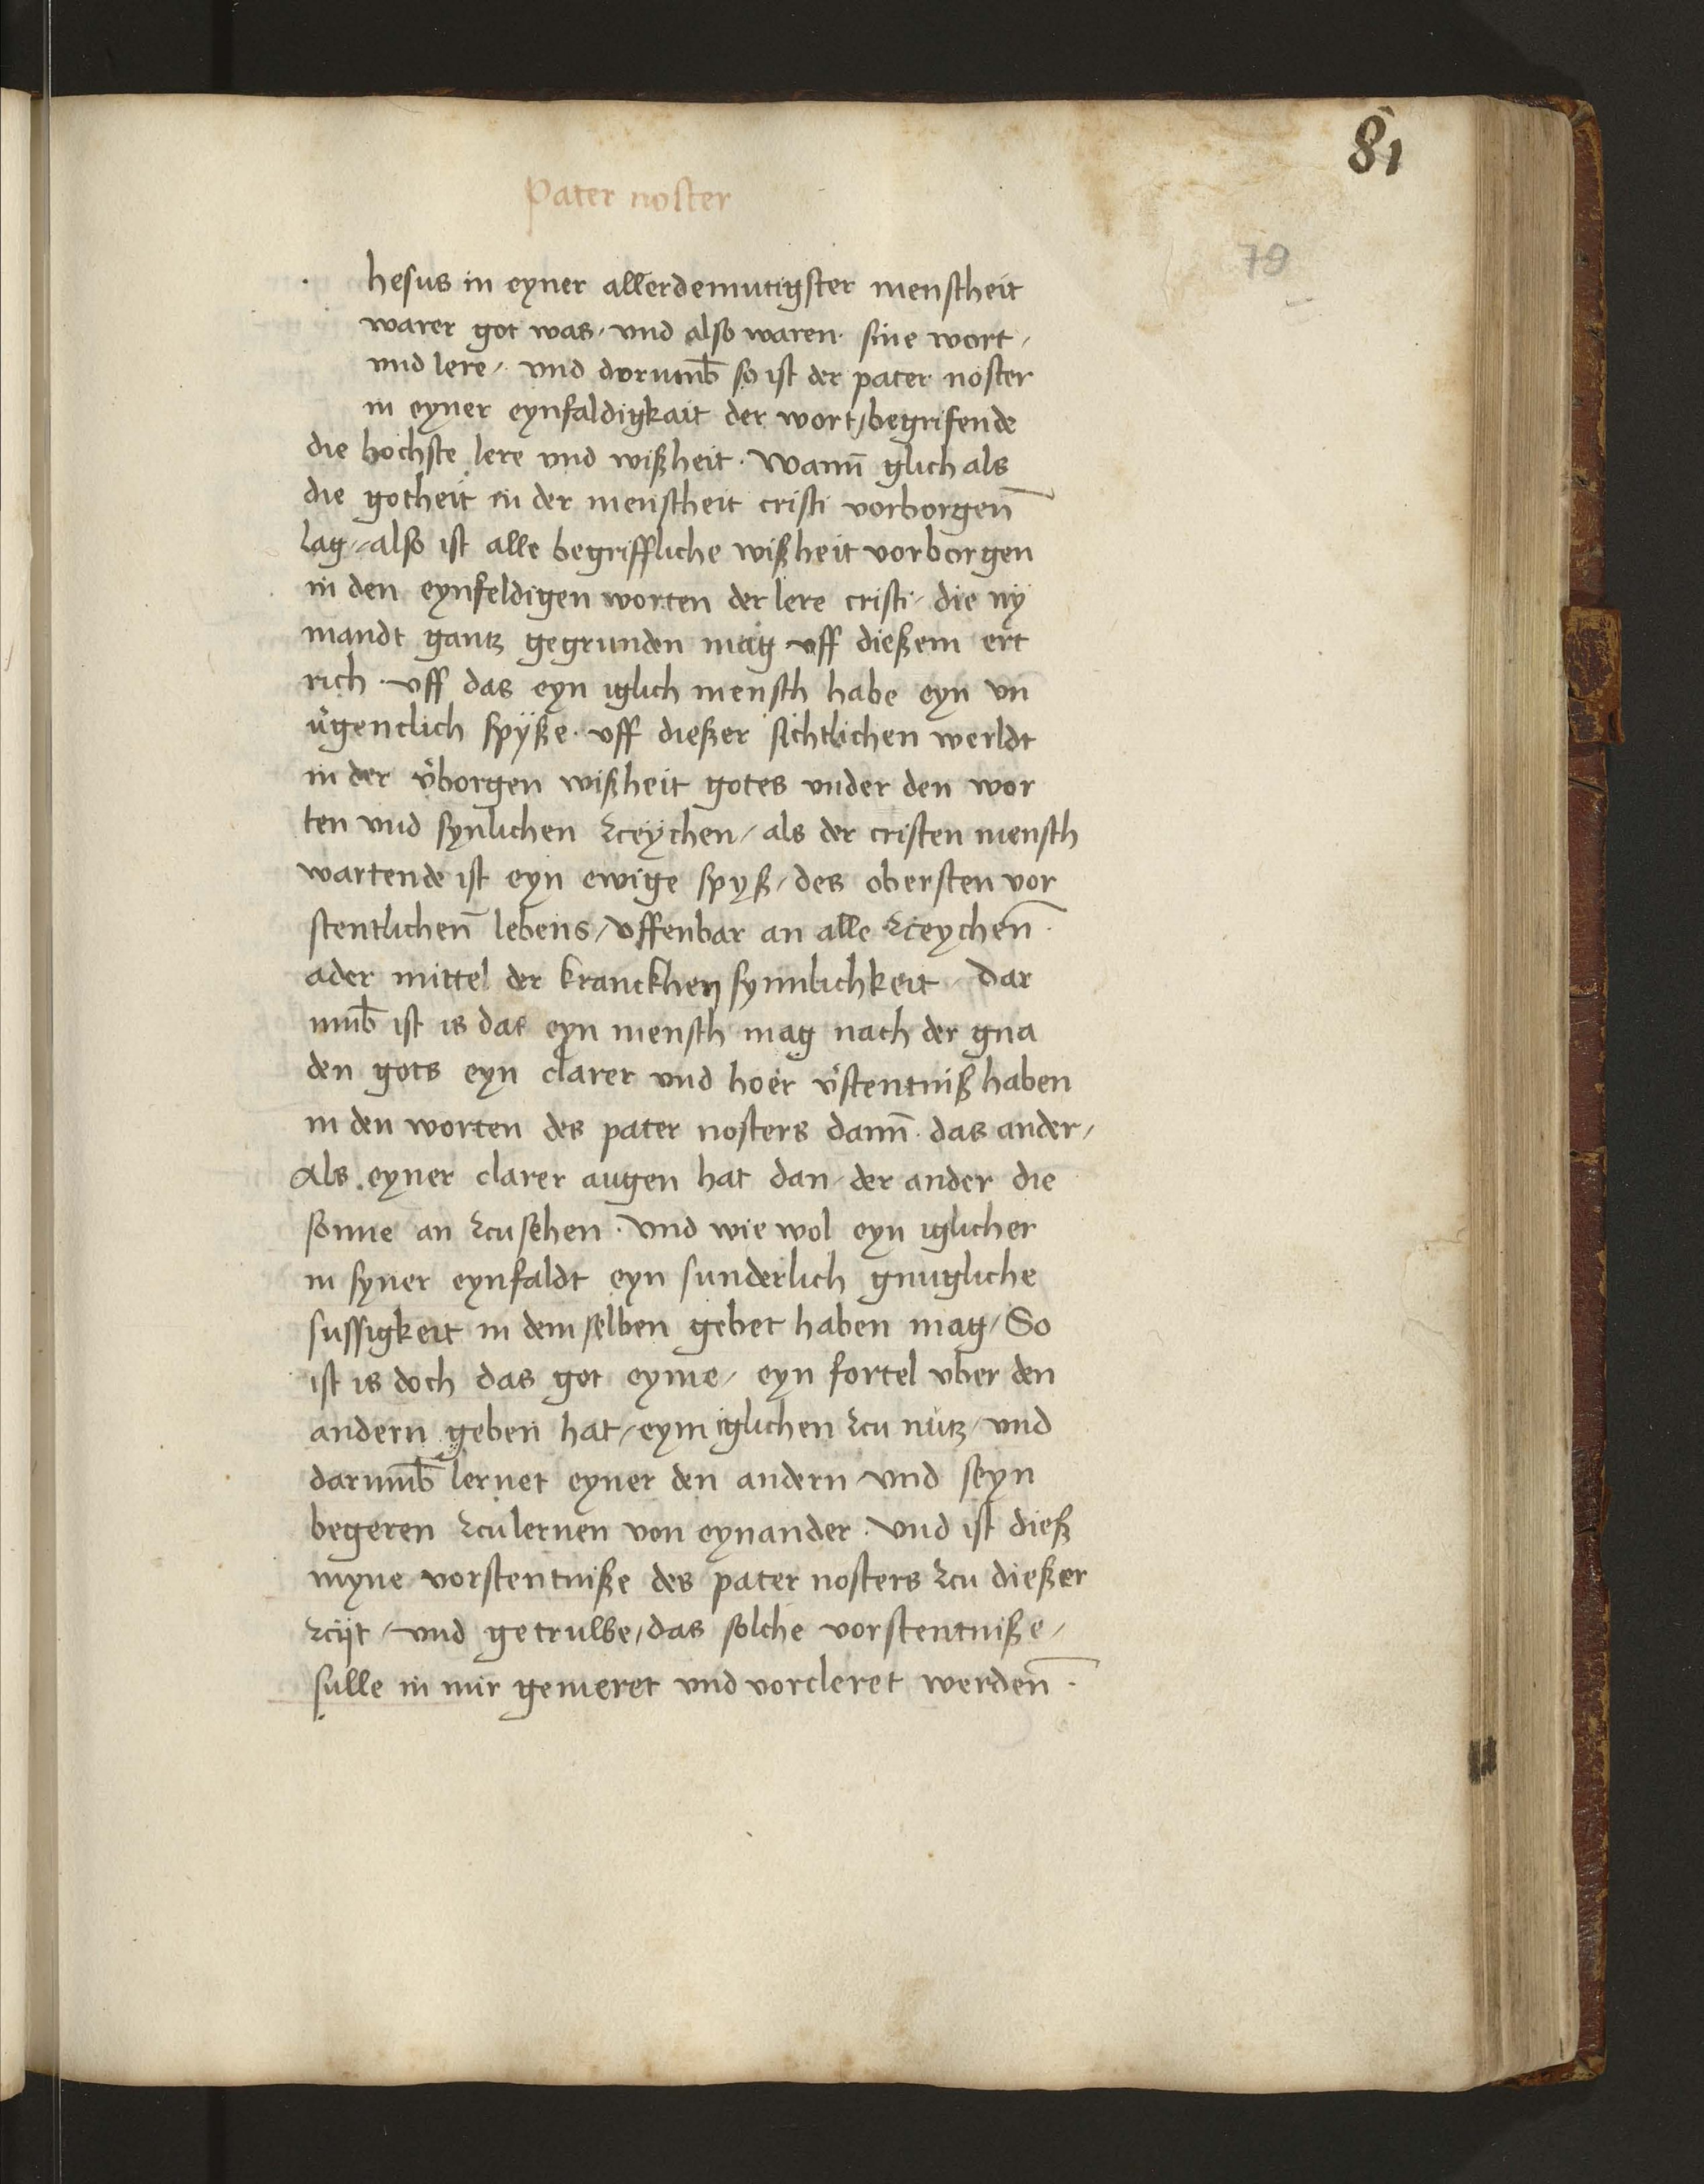 81
Pater noster
79
hesus in eyner allerdemutigster menstheit
warer got was / vnd also waren sine wort /
vnd lere / vnd dorumb̄ so ist der pater noster
in eyner eynfaldigkait der wort / begrifende
die hochste lere vnd wißheit · Wann̄ glich als
die gotheit in der menstheit cristi vorborgen̄
lag / also ist alle begriffliche wißheit vorborgen
in den eynfeldigen worten der lere cristi / die ny
mandt gantz gegrunden mag vff dießem ert
rich · vff das eyn iglich mensch habe eyn vn
u᷑genclich spyße · vff dießer sichtlichen werldt
in der v᷑borgen wißheit gotes vnder den wor
ten vnd synlichen zceychen / als der cristen mensch
wartende ist eyn ewige spyß / des obersten vor
stentlichen̄ lebens / vffenbar an alle zceychen̄ ·
ader mittel der kranckhen synnlichkeit / dar
vmb̄ ist is das eyn mensch mag nach der gna
den gots eyn clarer vnd hoer v᷑stentniß haben
in den worten des pater nosters dann̄ · das ander /
Als eyner clarer augen hat dan / der ander die
sonne an zcusehen · vnd wie wol eyn iglicher
in syner eynfaldt eyn sunderlich gnugliche
sussigkeit in dem selben gebet haben mag / So
ist is doch das got eyme / eyn fortel vber den
andern geben hat / eym iglichen zcu nutz / vnd
darumb̄ lernet eyner den andern vnd seyn
begeren zculernen von eynander · vnd ist dieß
myne vorstentniße des pater nosters zcu dießer
zcijt / vnd getruwe / das solche vorstentniße /
sulle in mir gemeret vnd vorcleret werden̄ ·